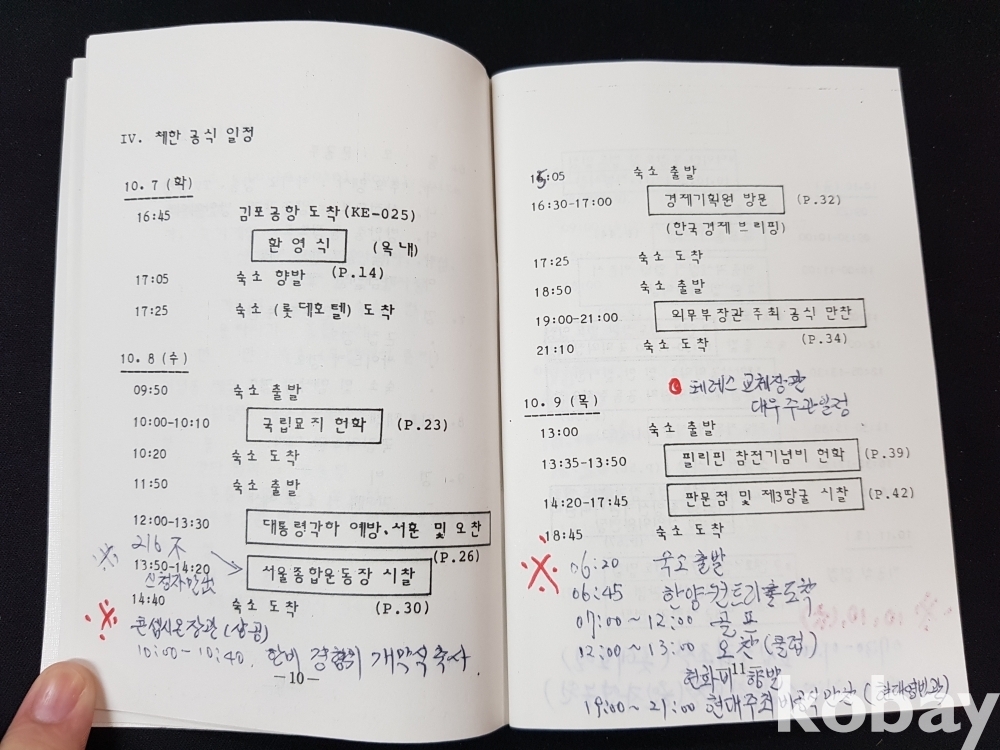 IV. 체한 공식 일정
10.7 (화)
16:45 김포공항 도착(KE-025)
환영식 (옥내)
17:05 숙소 향발 (P.14)
17:25 숙소 (롯데호텔) 도착
10.8 (수)
09:50 숙소 출발
10:00-10:10 국립묘지 헌화 (P.23)
10:20 숙소 도착
11:50 숙소 출발
12:00-13:30 대통령각하 예방.서훈 및 오찬
(P.26)
※ 216 不
13:50-14:20 서울종합운동장 시찰
14:40 숙소 도착 (P.30)
※ 콘셉시온장관(상공)
10:00-10:40. 한비 경협의 개막식 축사
-10-
15:05 숙소 출발
16:30-17:00 경제기획원 방문 (P.32)
(한국경제 브리핑)
17:25 숙소 도착
18:50 숙소 출발
19:00-21:00 외무부장관 주최 공식 만찬
21:10 숙소 도착 (P.34)
페레스 교체장관
대우주관일정
10.9 (목)
13:00 숙소 출발
13:35-13:50 필리핀 참전기념비 헌화 (P.39)
14:20-17:45 판문점 및 제3땅굴 시찰 (P.42)
18:45 숙소 도착
※ 06:20 숙소출발
06:45 한양컨트리클 도착
07:00~12:00 골프
12:00~13:00 오찬(클럽)
헌화비 향발
-11-
19:00~21:00 현대주최 만찬 (현대영빈관)
kobay